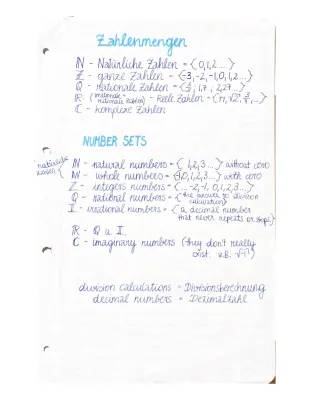 Zahlenmengen
N - Natürliche Zahlen = {0,1,2...}
Z - ganze Zahlen - {-3,-2,-1,0,1,2...}
Q - rationale Zahlen =
R - Reele Zahlen
C - komplexe Zahlen
NUMBER SETS
N - natural numbers = { 1,2,3...} without zero
whole numbers = {0,1,2,3...} with zero
Z - integers numbers = {...-2,-1, 0,1,2,3...}
Q - rational numbers = {the answer to division
calculation}
I - irrational numbers = {a decimal number
that never repeats or stops}
R - Q u I
C - imaginary numbers (they don't really
exist. z.B. √-1)
division calculations = Divisionsberechnung
decimal numbers = Dezimalzahl